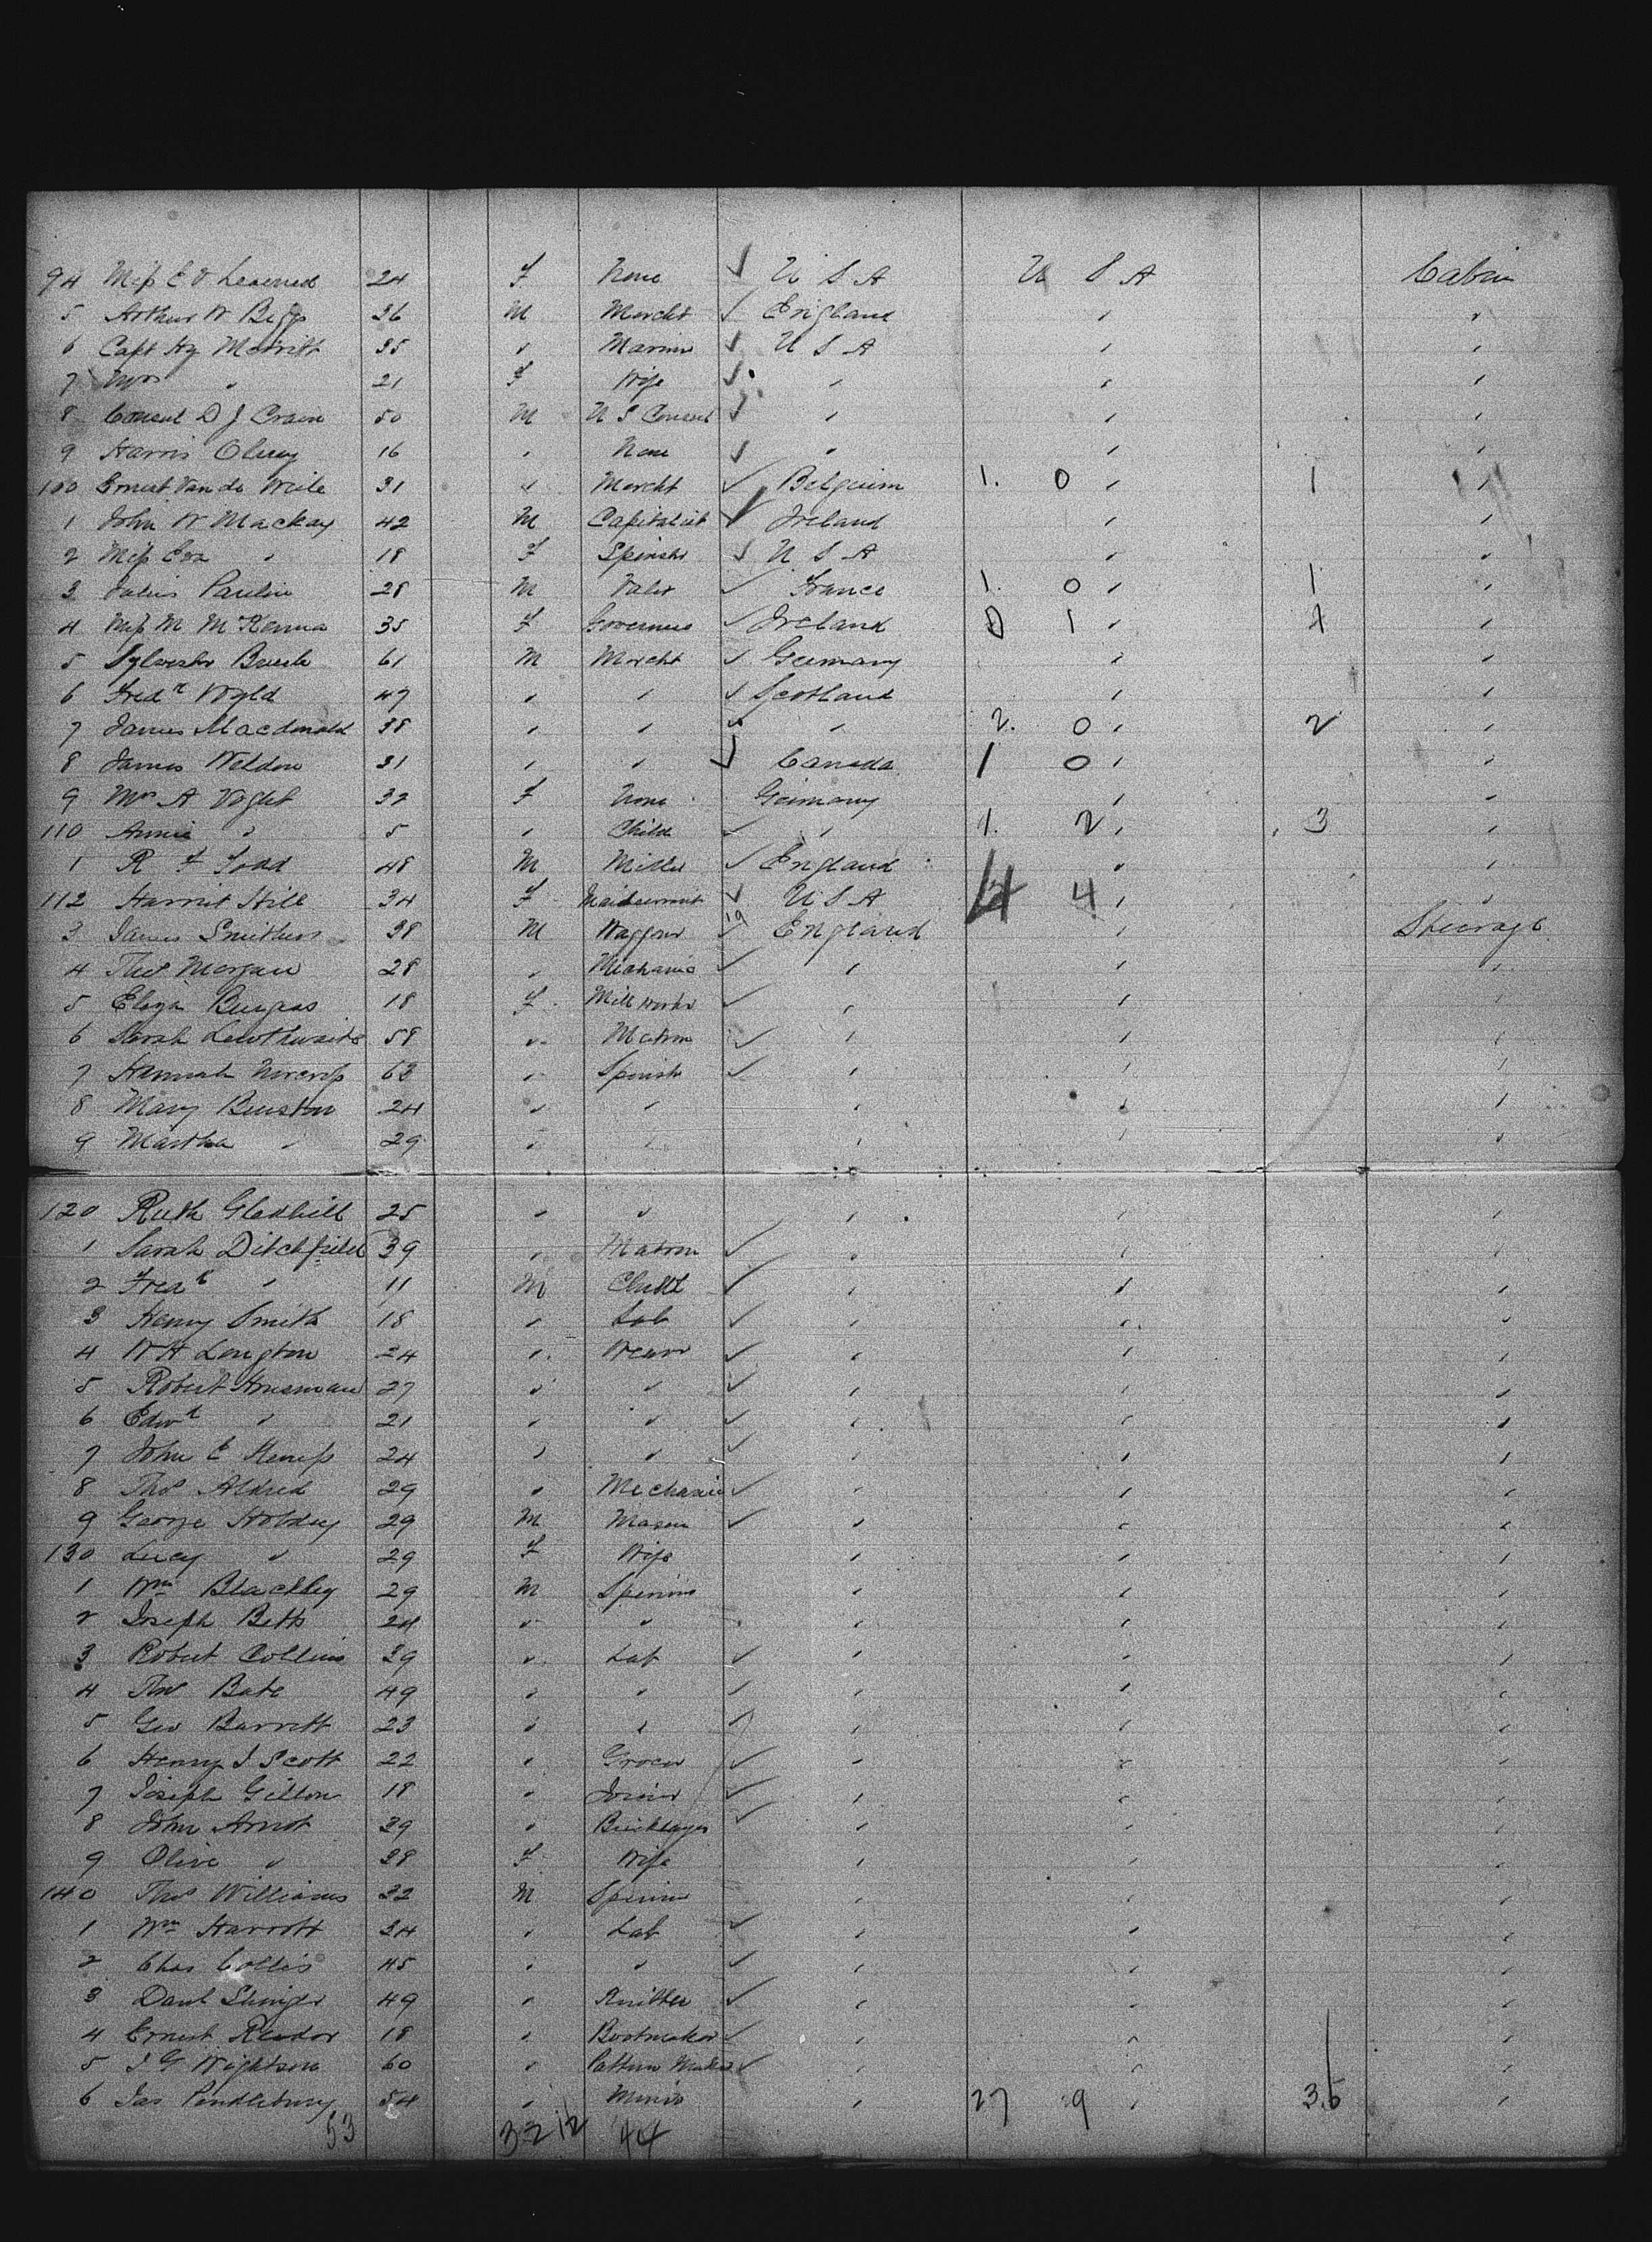 94 Miss E V Learned 24 F None √ U S A U S A Cabin
5 Arthur W Beggs 26 M Mercht √ England " "
6 Capt Hy Merrith 35 " Marinr √ U S A " "
7 Mrs " 21 F Wife √ " " "
8 Consul D J Crain 50 M U S Consul √ " " "
9 Harris 16 " None √ " " "
100 Ernest Van de Weile 31 " Mercht √ Belgium 1. 0 " 1 "
1 John W Mackay 42 M Capitalist √ Ireland " "
2 Miss Eva " 18 F Spinstr √ U S A " "
3 Julius Paulin 28 M Valet √ France 1. 0 " 1 "
4 Miss M McKenna 35 F Governess √ Ireland 0 1 " 1 "
5 Sylvestr 61 M Mercht √ Germany " "
6 Fredk Wyld 47 " " √ Scotland " "
7 James Macdonald 38 " " √ " 2. 0 " 2 "
8 James Weldon 31 " " √ Canada 1 0 " "
9 Mrs A Voght 32 F None Germany " "
110 Annie " 5 " Child √ " 1. 2 " 3 "
1 R F Todd 48 M Miller √ England " "
112 Harriet Hill 34 F Maidservant √ U S A 4 4 " "
3 James Smithers 38 M 19 √ England " Steerage
4 Thos Morgan 28 " Mechanic √ " " "
5 Eliza Burgess 18 F Mill workr √ " " "
6 Sarah Lewthwaite 58 " Matron √ " " "
7 Hannah 63 " Spinstr √ " " "
8 Mary 24 " " " " "
9 Martha " 29 " " " " "
120 Ruth Gledhill 25 " " " " "
1 Sarah Ditchfield 39 " Matron √ " " "
2 Fredk " 11 M Child √ " " "
3 Henry Smith 18 " Lab √ " " "
4 W H Longton 24 " Weavr √ " " "
5 Robert 27 " " √ " " "
6 Edwd " 21 " " √ " " "
7 John E Kemp 24 " " √ " " "
8 Thos Aldred 29 " Mechanic √ " " "
9 George Holdey 29 M Mason √ " " "
130 Lucy " 29 F Wife " " "
1 Wm Blackley 29 M Spinnr " " "
2 Joseph Betts 24 " " " " "
3 Robert Collins 39 " Lab √ " " "
4 Thos Bate 49 " " √ " " "
5 Geo Barrett 23 " " √ " " "
6 Henry J Scott 22 " Grocer √ " " "
7 Joseph Gilton 18 " Joiner √ " " "
8 John Arnot 39 " Bricklayer √ " " "
9 Olive " 28 F Wife " " "
140 Thos Williams 32 M Spinnr " " "
1 Wm Harrott 24 " Lab √ " " "
2 Chas Collis 45 " " √ " " "
3 Danl Slinger 49 " Knitter √ " " "
4 Ernest Reador 18 " Bootmaker √ " " "
5 J G Wightson 60 " Pattern Maker √ " " "
6 Jas Pendlebury 54 " Miner " 27 9 " 36 "
53 32 12 44